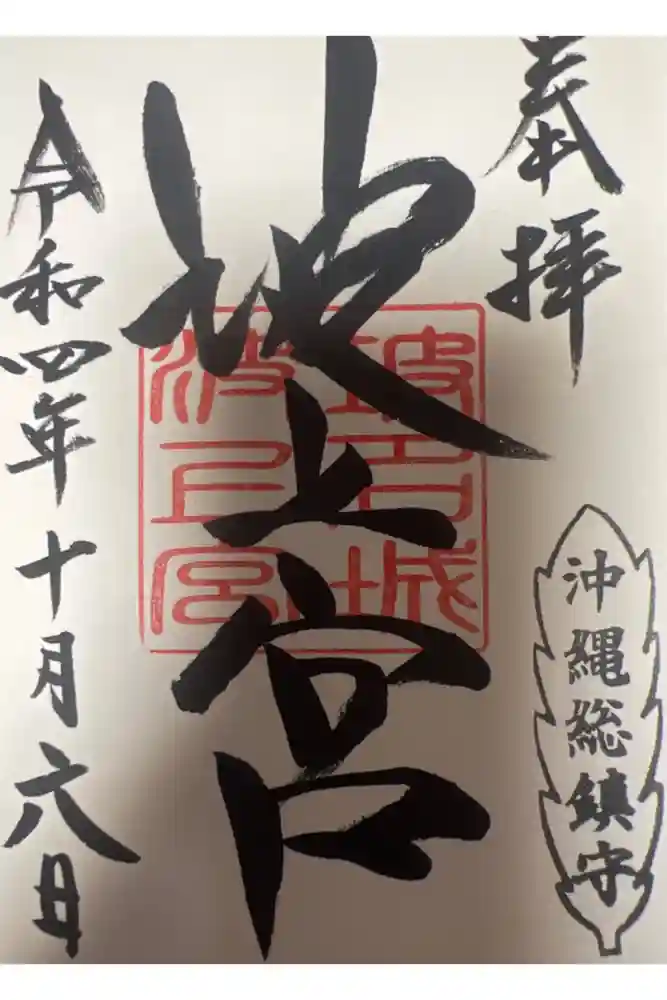 奉拝
沖縄総鎮守
波上宮
波上宮
令和四年十月六日